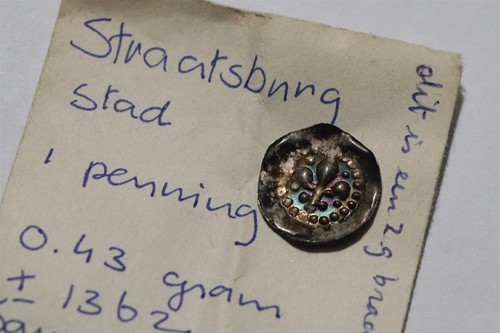 Straatsburg
stad
1 penning
0.43 gram
± 1362
dit is een zg